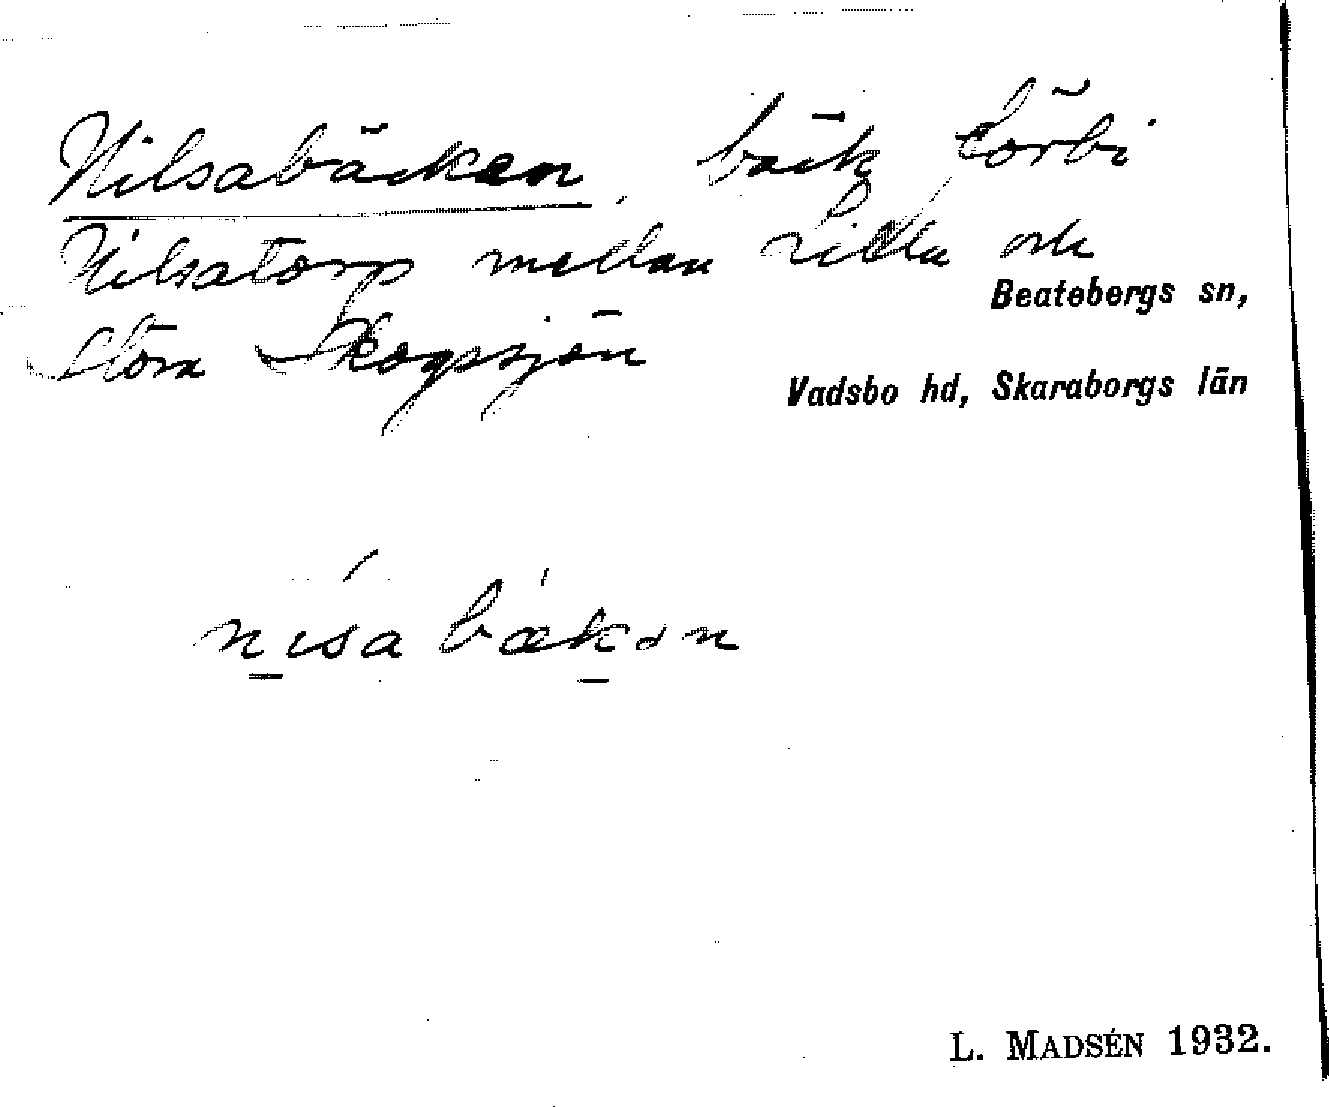 Nilsabäcken, bäck förbi
Nilsatorp mellan Lilla och
Stora Skogssjön
Beatebergs sn,
Vadsbo hd, Skaraborgs län
L. MADSÉN 1932.